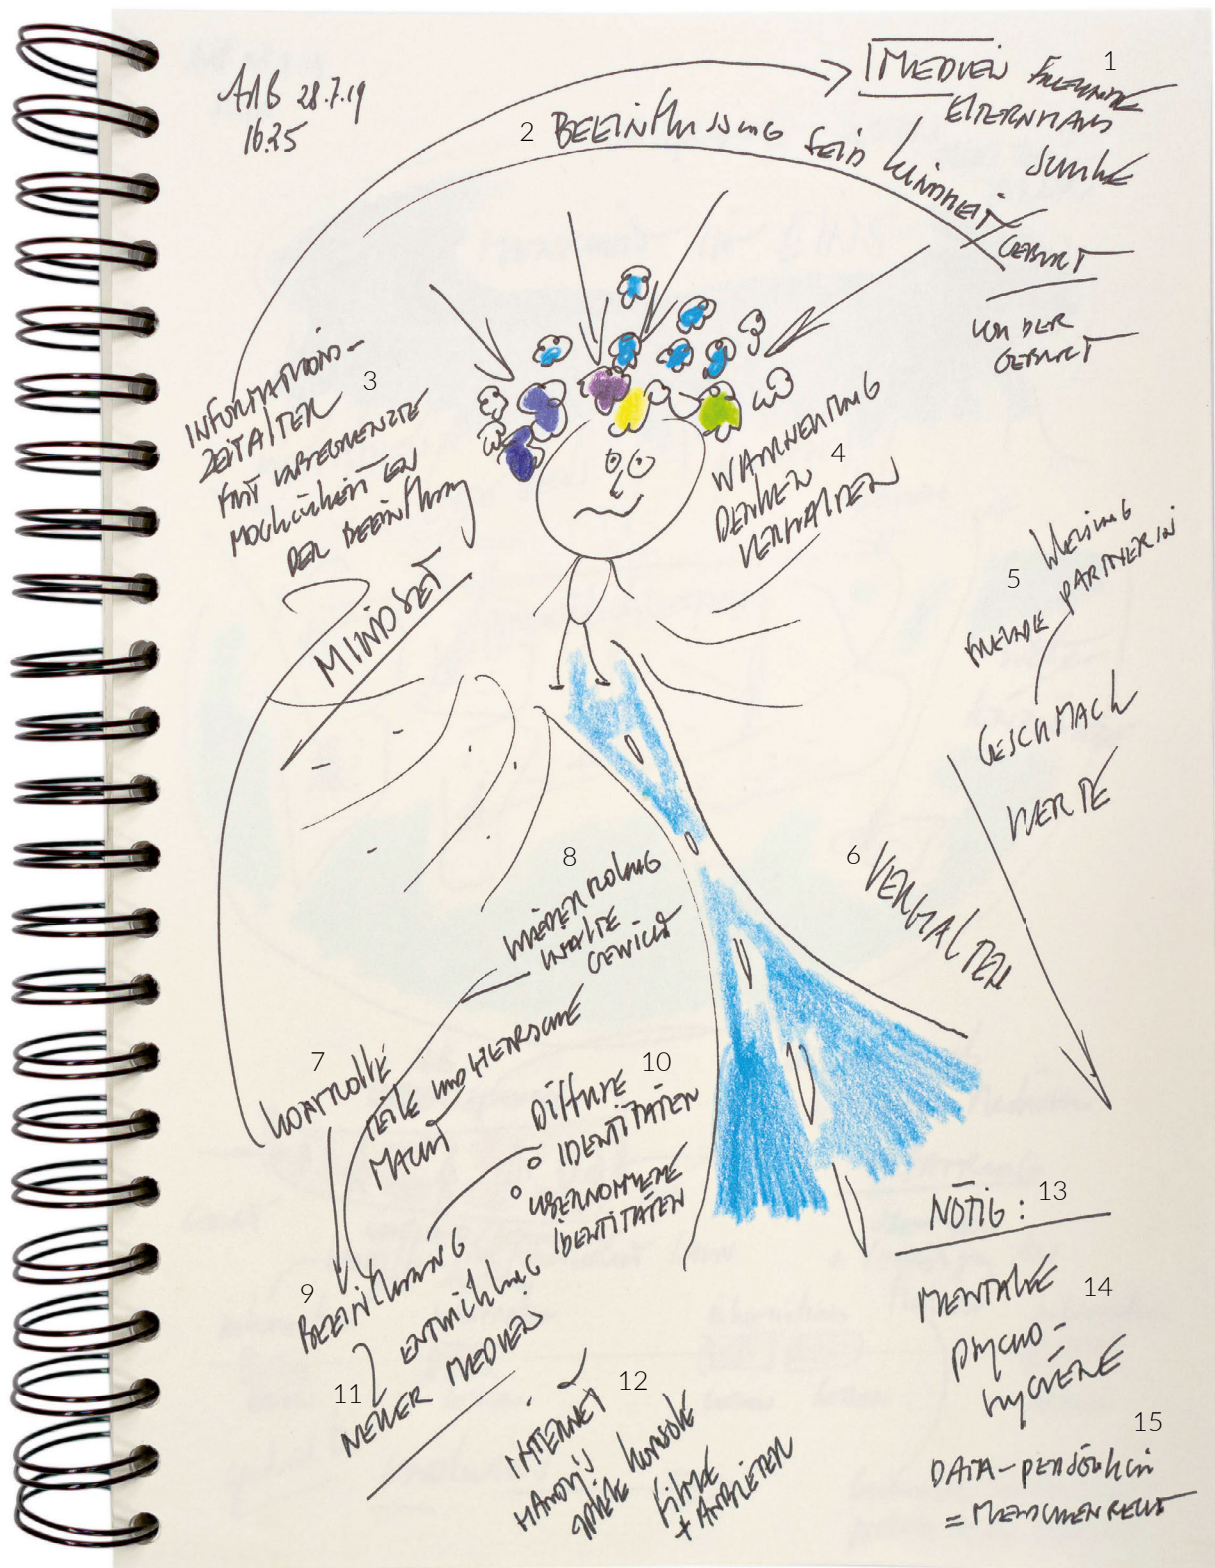 28.7.19
16.25
MEDIEN FREUNDE 1
ELTERNHAUS
SCHULE
2 BEEINFLUSSUNG SEIT KINDHEIT/
GEBURT
VON DER
GEBURT
INFORMATIONS-
ZEITALTER 3
FAST UNBEGRENZTE
MÖGLICHKEITEN
DER BEEINFLUSSUNG
MINDSET
WAHRNEHMUNG
DENKEN 4
VERHALTEN
5
PARTNERIN
FREUNDE
GESCHMACK
WERTE
6 VERHALTEN
8
WIEDERHOLUNG
INHALTE
GEWICHT
7
KONTROLLE
TEILE UND HERRSCHE
MACHT
10
DIFFUSE
IDENTITÄTEN
ÜBERNOMMENE
IDENTITÄTEN
9
BEEINFLUSSUNG
11
ENTWICKLUNG
NEUER MEDIEN
12
INTERNET
HANDYS
SPIELE KONSOLE
FILME
+ ANBIETER
NÖTIG: 13
MENTALE 14
PSYCHO-
HYGIENE
15
DATA-PERSÖNLICH
= MENSCHENRECHT